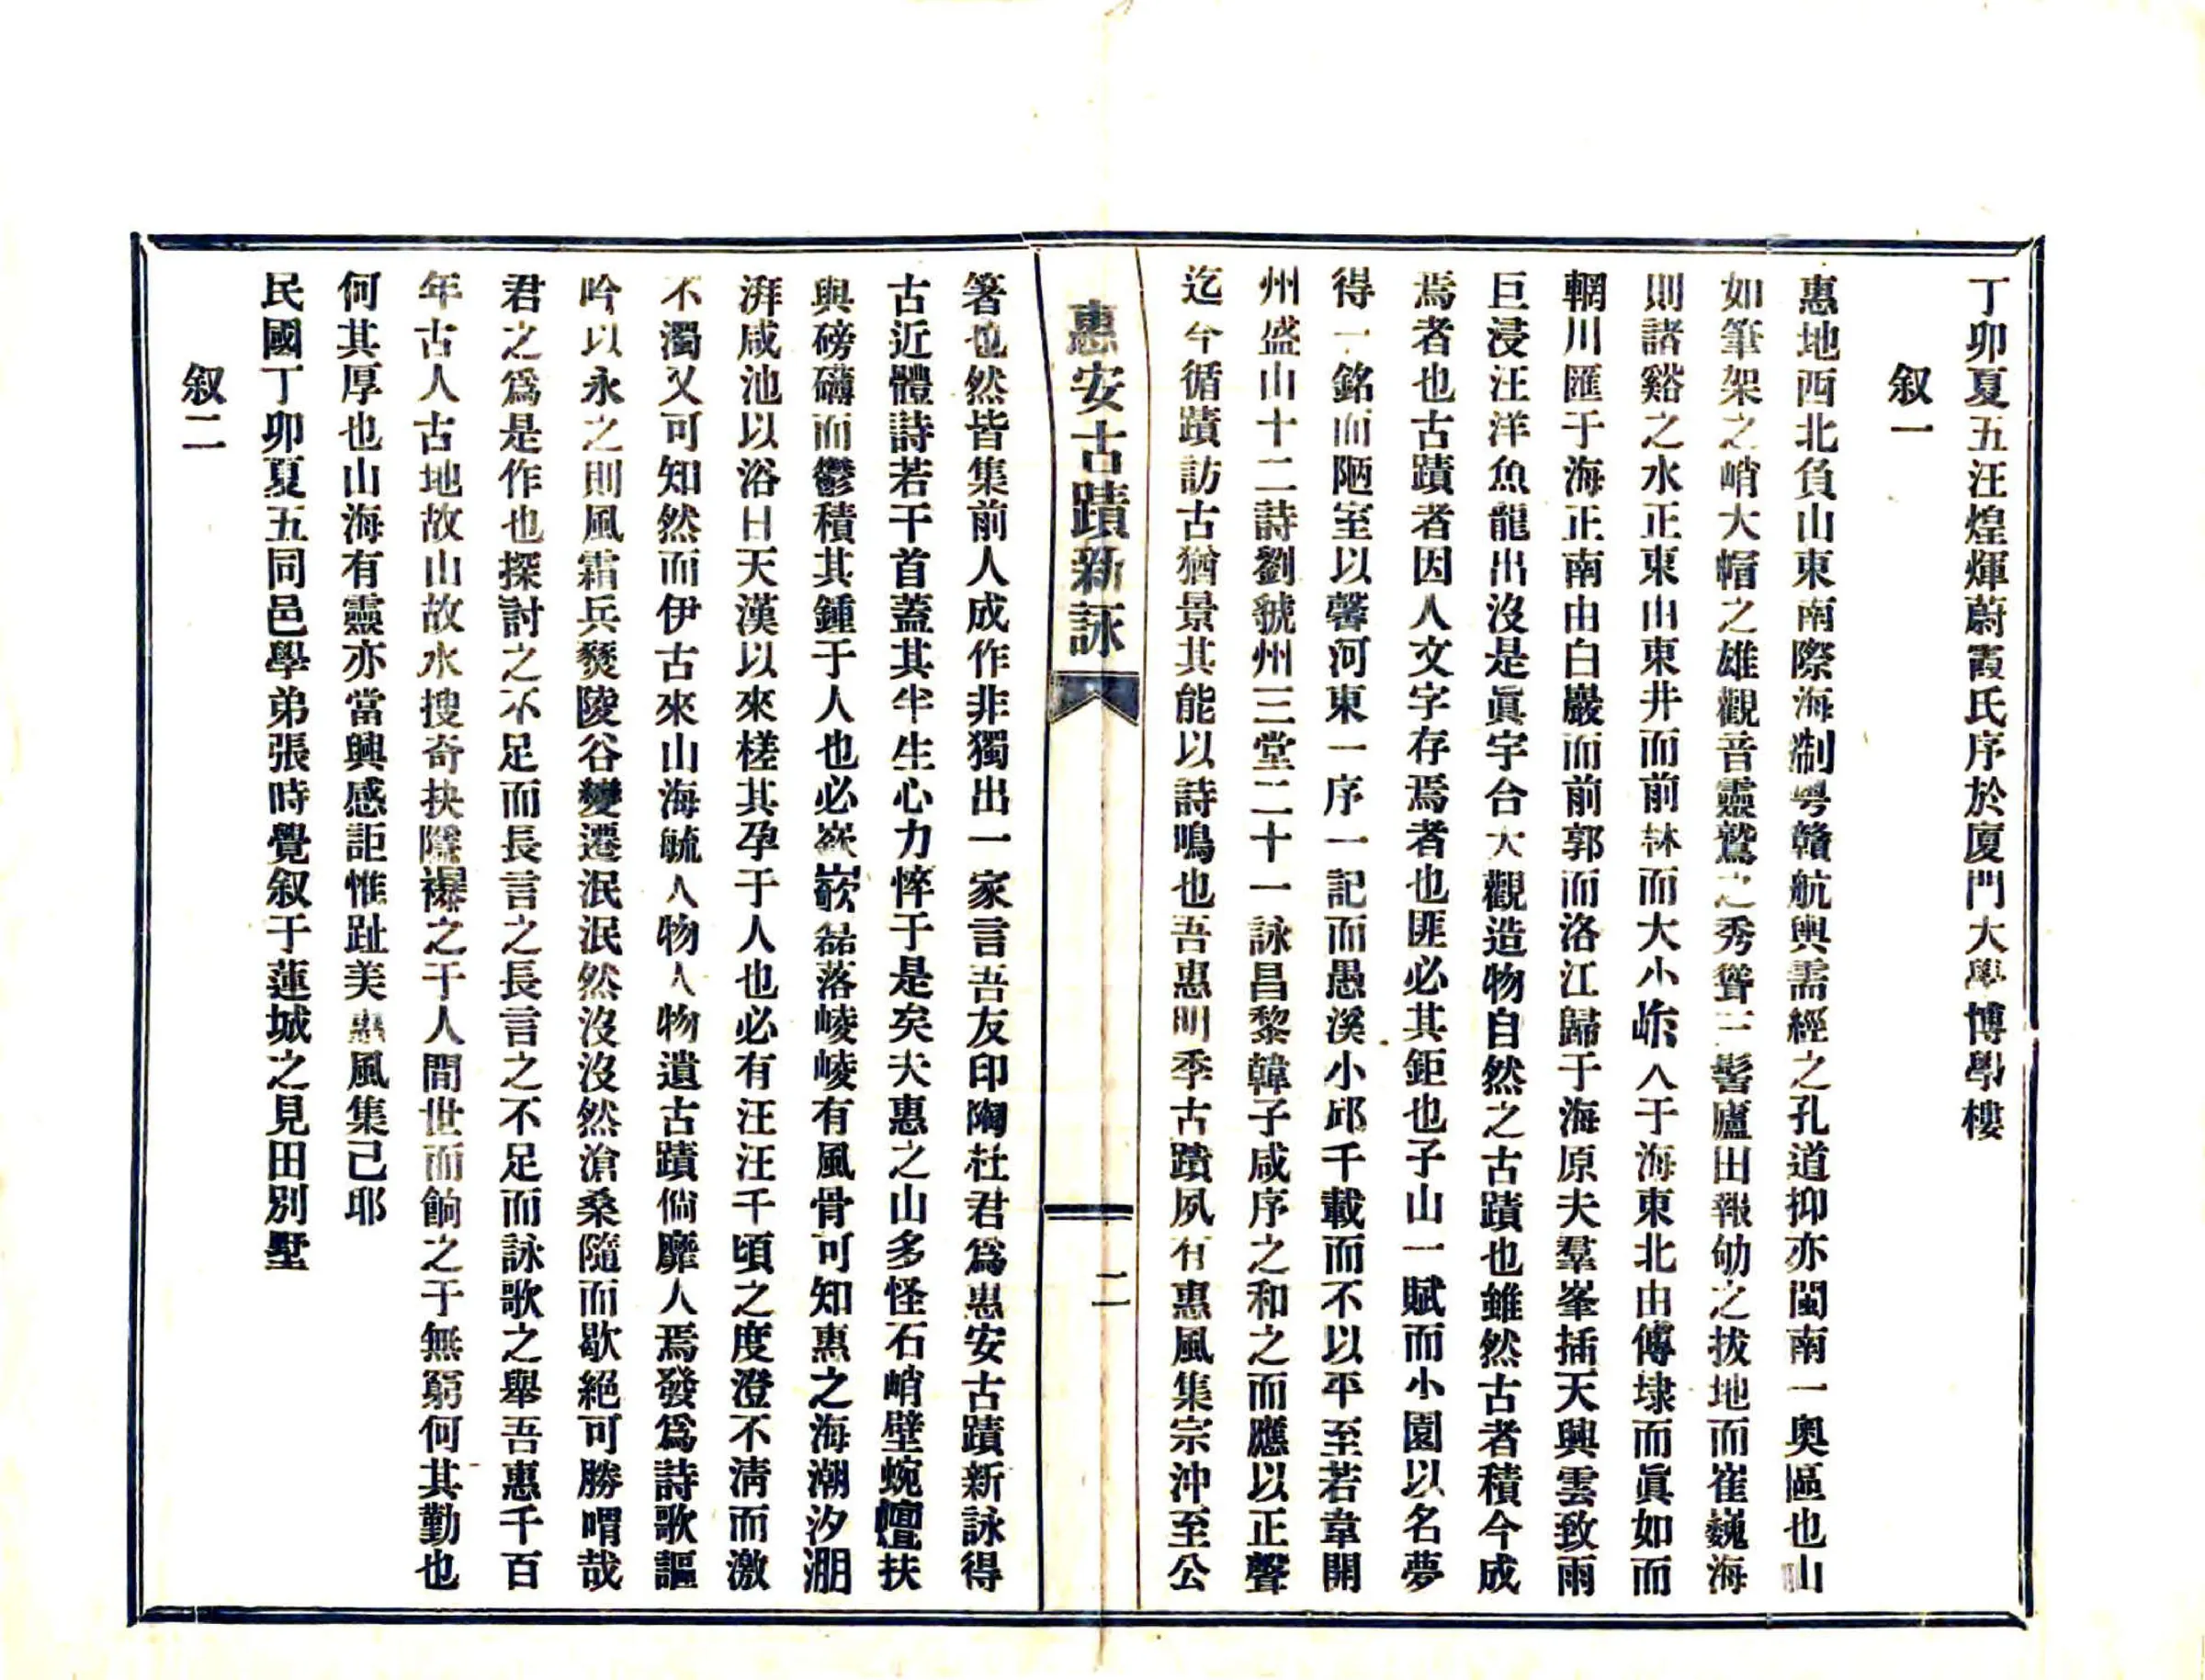 丁卯夏五汪煌輝蔚霞氏序於廈門大學博學樓
叙一
惠地西北負山東南際海淛粵贛航輿需經之孔道抑亦閩南一奧區也山
如筆架之峭大帽之雄觀音靈鷲之秀聳三髻廬田報劬之拔地而崔巍海
則諸谿之水正東由東井而前林而大小岞入于海東北由傅埭而眞如而
輞川匯于海正南由白巖而前郭而洛江歸于海原夫羣峯插天興雲致雨
巨浸汪洋魚龍出沒是眞宇合大觀造物自然之古蹟也雖然古者積今成
焉者也古蹟者因人文字存焉者也匪必其鉅也子山一賦而小園以名夢
得一銘而陋室以馨河東一序一記而愚溪小邱千載而不以平至若韋開
州盛山十二詩劉虢州三堂二十一詠昌黎韓子咸序之和之而應以正聲
迄今循蹟訪古猶景其能以詩鳴也吾惠明季古蹟夙有惠風集宗沖至公
惠安古蹟新詠
二
箸也然皆集前人成作非獨出一家言吾友印陶杜君爲惠安古蹟新詠得
古近體詩若干首蓋其半生心力悴于是矣夫惠之山多怪石峭壁蜿蟺扶
輿磅礴而鬱積其鍾于人也必嶔嶔磊落崚崚有風骨可知惠之海潮汐淜
湃咸池以浴日天漢以來槎其孕于人也必有汪汪千頃之度澄不淸而激
不濁又可知然而伊古來山海毓人物人物遺古蹟倘靡人焉發爲詩歌謳
吟以永之則風霜兵燹陵谷變遷泯泯然沒沒然滄桑隨而歇絕可勝喟哉
君之爲是作也探討之不足而長言之長言之不足而詠歌之舉吾惠千百
年古人古地故山故水搜奇抉隱襮之于人間世而餉之于無窮何其勤也
何其厚也山海有靈亦當興感詎惟趾美惠風集己耶
民國丁卯夏五同邑學弟張時覺叙于蓮城之見田別墅
叙二